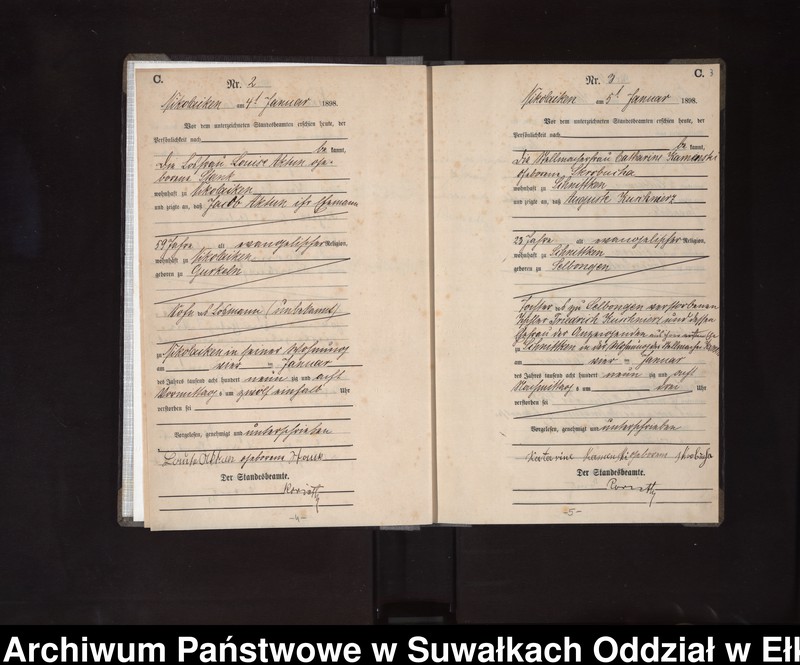 C.
Nr. 2
Nikolaiken am 4t Januar 1898.
Vor dem unterzeichneten Standesbeamten erschien heute, der
Persönlichkeit nach
be kannt,
Die Losfrau Louise
borene
wohnhaft zu Nikolaiken
und zeigte an, daß Jacob ihr Ehemann
59 Jahre alt evangelischer Religion,
wohnhaft zu Nikolaiken
geboren zu Gurkeln
Sohn des Losmann (unbekannt)
zu Nikolaiken in seiner Wohnung
am vier ten Januar
des Jahres tausend acht hundert neun zig und acht
Vormittags um zwölf einhalb Uhr
verstorben sei
Vorgelesen, genehmigt und unterschrieben
Louise geborene
Der Standesbeamte.
-4-
C.
Nr. 3
Nikolaiken am 5t Januar 1898.
Vor dem unterzeichneten Standesbeamten erschien heute, der
Persönlichkeit nach
be kannt,
Die Catharine Kamenski
geborene Skrobucha
wohnhaft zu Schnittken
und zeigte an, daß Auguste
23 Jahre alt evangelischer Religion,
wohnhaft zu Schnittken
geboren zu Selbongen
Tochter des zu Selbongen verstorbenen
Friedrich und dessen
Ehefrau der
zu Schnittken in der Wohnung des
am vier ten Januar
des Jahres tausend acht hundert neun zig und acht
Nachmittags um drei Uhr
verstorben sei
Vorgelesen, genehmigt und unterschrieben
Katarine Kamenski geborene
Der Standesbeamte.
-5-
Archiwum Państwowe w Suwałkach Oddział w Ełk